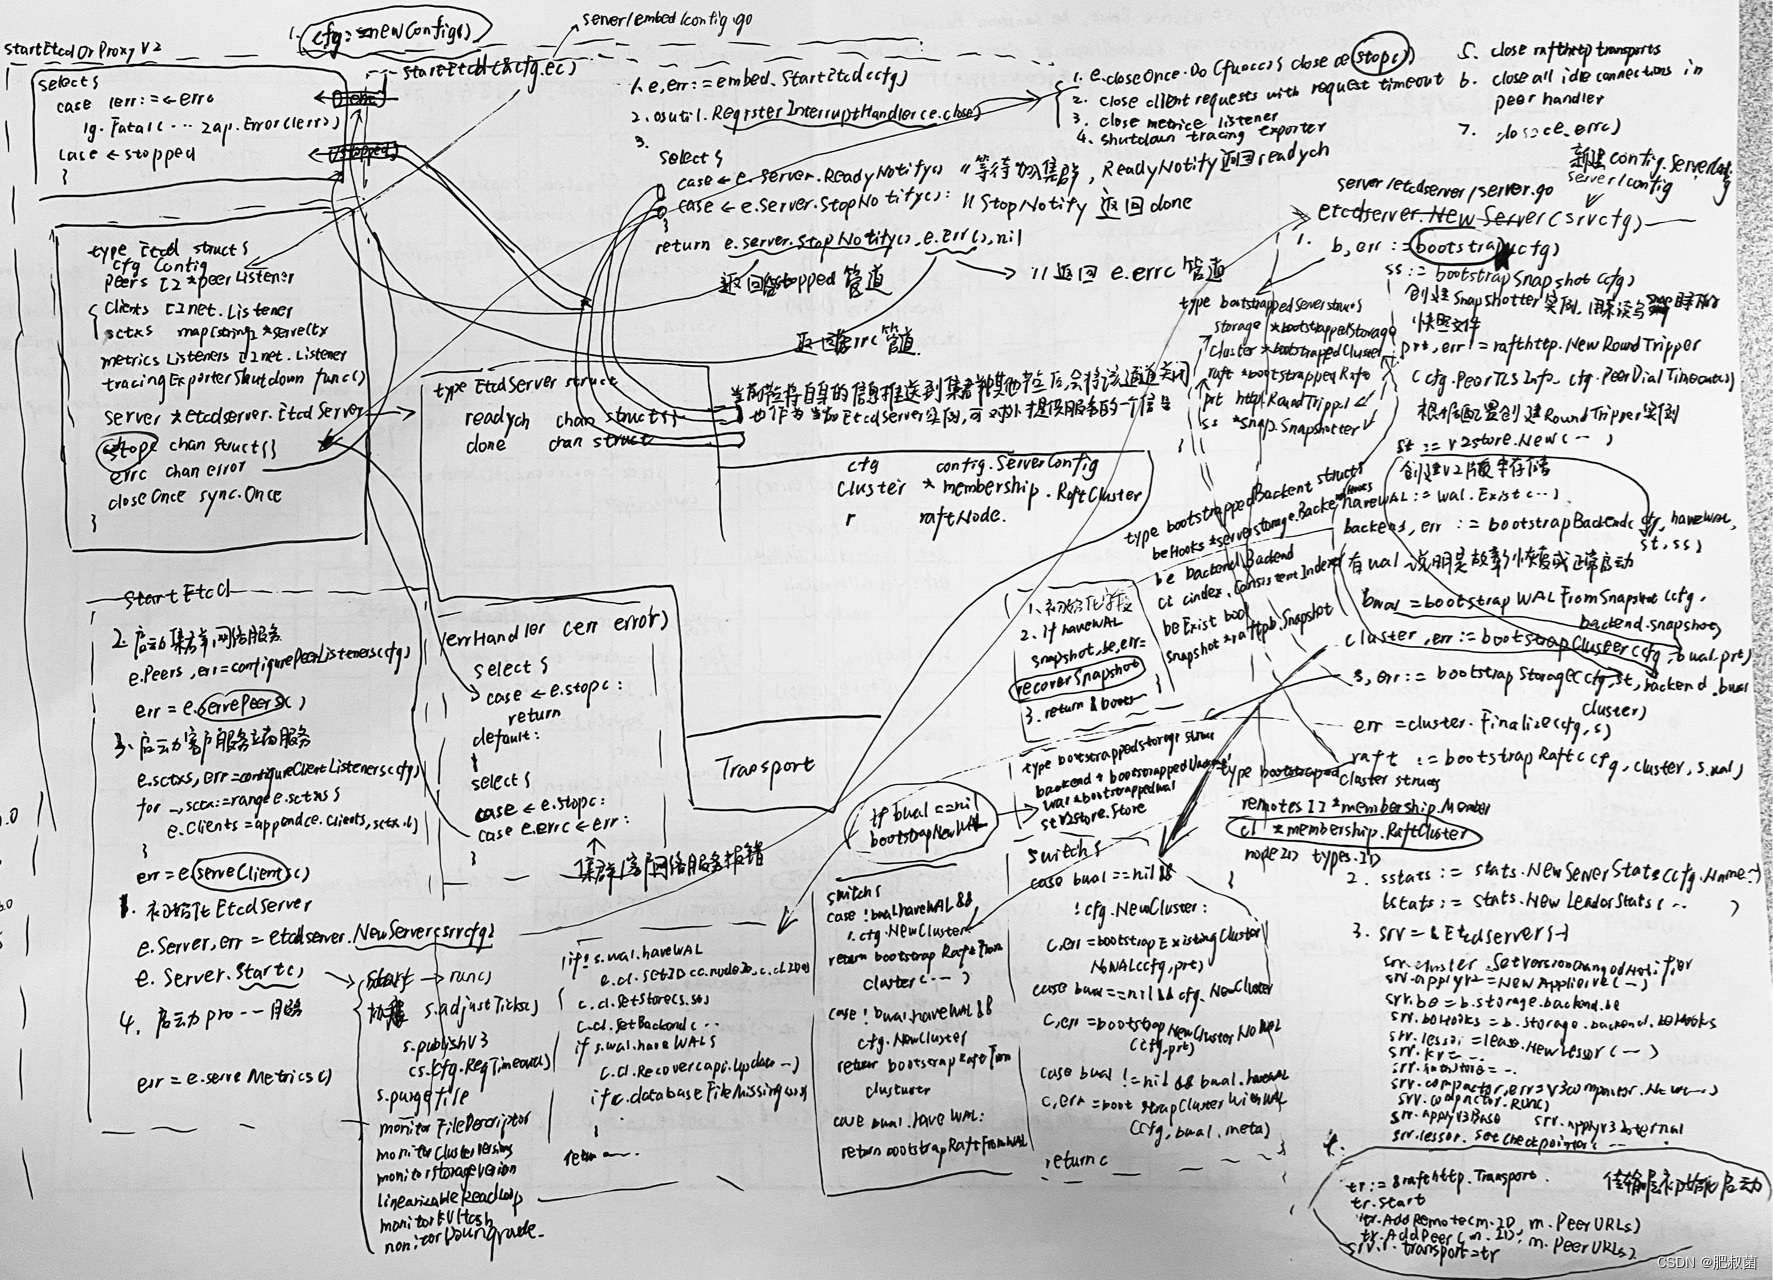 startEtcdOrProxy V2
1. cfg:=newConfig()
server/embed/config.go
startEtcd(&cfg.ec)
select {
case lerr:=<-errc
lg.Fatal(... zap.Error(lerr))
case <-stopped
}
errc
stopped
1. e,err:=embed.StartEtcd(cfg)
2. osutil.RegisterInterruptHandler(e.close)
3.
select {
case <- e.Server.ReadyNotify() // 等待加入集群, ReadyNotify返回readych
case <- e.Server.StopNotify(): // StopNotify 返回done
}
return e.Server.StopNotify(), e.Err(), nil
返回stopped 管道
// 返回 e.errc 管道
返回errc 管道
1. e.closeOnce.Do(func() { close(e.stopc)
2. close client requests with request timeout
3. close metrics listener
4. shutdown tracing exporter
5. close rafthttp transports
6. close all idle connections in
peer handler
7. close(e.errc)
type Etcd struct {
cfg Config
Peers []*peerListener
Clients []net.Listener
sctxs map[string]*serveCtx
metricsListeners []net.Listener
tracingExporterShutdown func()
server *etcdserver.EtcdServer
stopc chan struct{}
errc chan error
closeOnce sync.Once
}
type EtcdServer struct
readych chan struct{}
done chan struct
也作为当前EtcdServer实例,可以对外提供服务的一个信号
cfg config.ServerConfig
Cluster * membership.RaftCluster
r raftNode.
Transport
StartEtcd
2. 启动集群网络服务
e.Peers, err=configurePeerListeners(cfg)
err = e.servePeers()
3. 启动客户服务端服务
e.sctxs, err=configureClientListeners(cfg)
for _, sctx:=range e.sctxs {
e.Clients=append(e.Clients, sctx.l)
}
err = e.serveClients()
1. 初始化EtcdServer
e.Server, err = etcdserver.NewServer(srvcfg)
e.Server.Start()
4. 启动pro...服务
err = e.serveMetrics()
errHandler (err error)
select {
case <- e.stopc:
return
default:
}
select {
case <- e.stopc:
case e.errc <- err:
}
集群/客户网络服务报错
start -> run()
协程 s.adjustTicks()
s.publishV3
(s.Cfg.ReqTimeout())
s.purgeFile
monitorFileDescriptor
monitorClusterVersions
monitorStorageVersion
linearizableReadLoop
monitorKVHash
monitorDowngrade
if! s.wal.haveWAL
c.cl.SetStore(s.st)
c.cl.SetBackend(...
if s.wal.haveWAL {
c.cl.Recover(api.UpdateC...)
if c.databaseFileMissing(s)
}
return ...
新建config.ServerConfig
server/config
server/etcdserver/server.go
etcdserver.NewServer(srvcfg)
1. b, err := bootstrap(cfg)
ss := bootstrapSnapshot(cfg)
快照文件
prt, err = rafthttp.NewRoundTripper
(cfg.PeerTLSInfo, cfg.PeerDialTimeout())
根据配置创建RoundTripper实例
st := v2store.New(...)
创建v2版本存储
haveWAL := wal.Exist(...)
backend, err := bootstrapBackend(cfg, haveWAL,
st, ss)
有wal说明是故障恢复或正常启动
bwal = bootstrapWALFromSnapshot(cfg,
backend.snapshot)
cluster, err := bootstrapCluster(cfg, bwal, prt)
s, err := bootstrapStorage(cfg, st, backend, bwal
cluster)
err = cluster.Finalize(cfg, s)
raft := bootstrapRaft(cfg, cluster, s.wal)
type bootstrappedServer struct {
storage *bootstrappedStorage
Cluster *bootstrapedCluster
raft *bootstrappedRaft
prt http.RoundTripper
ss *snap.Snapshotter
}
type bootstrappedBackend struct {
beHooks *serverstorage.BackendHooks
be backend.Backend
ci cindex.ConsistentIndexer
beExist bool
snapshot *raftpb.Snapshot
}
1. 初始化字段
2. if haveWAL
snapshot, be, err=
recoverSnapshot
3. return &boots
type bootstrappedStorage struct
backend * bootstrappedBackend
wal *bootstrappedWAL
st v2store.Store
type bootstraped Cluster struct
remotes []*membership.Member
cl *membership.RaftCluster
nodeID types.ID
}
if bwal==nil
bootstrapNewWAL
switch {
case !bwal.haveWAL &&
!cfg.NewCluster
return bootstrapRaftFrom
cluster(...)
case !bwal.haveWAL &&
cfg.NewCluster
return bootstrapRaftFrom
cluster
case bwal.haveWAL:
return bootstrapRaftFromWAL
switch {
case bwal==nil &&
!cfg.NewCluster:
c, err=bootstrapExistingCluster
NoWAL(cfg, prt)
case bwal==nil && cfg.NewCluster
c, err=bootstrapNewClusterNoWAL
(cfg, prt)
case bwal !=nil && bwal.haveWAL
c, err=bootstrapClusterWithWAL
(cfg, bwal, meta)
return c
2. sstats := stats.NewServerStats(cfg.Name...)
lstats := stats.NewLeaderStats(... )
3. srv = &EtcdServer{-}
srv.cluster.SetVersionChangedNotifier
srv.applyV2=NewApplierV2(-)
srv.be = b.storage.backend.be
srv.beHooks = b.storage.backend.beHooks
srv.lessor=lease.NewLessor(...)
srv.kv= ...
srv.authStore= ..
srv.compactor, err=v3compactor.New(...)
srv.compactor.Run()
srv.applyV3Base srv.applyV3Internal
srv.lessor.SetCheckpointer(...
4.
tr := &rafthttp.Transport.
传输层初始化启动
tr.Start
tr.AddRemote(m.ID, m.PeerURLs)
tr.AddPeer(m.ID, m.PeerURLs).
srv.r.transport=tr
CSDN @肥叔菌